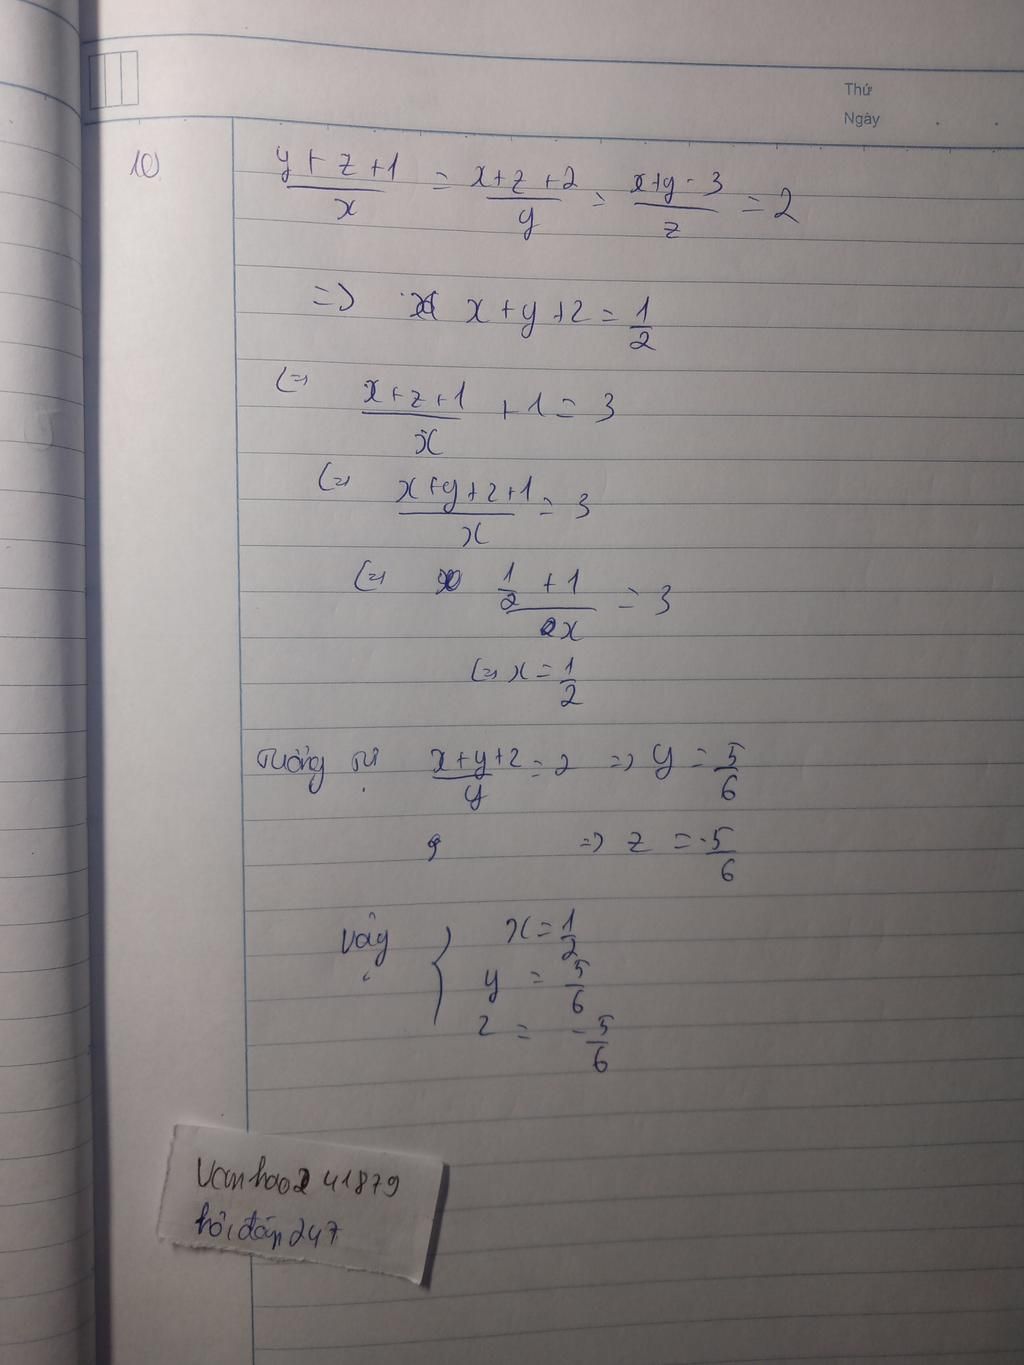 Thứ
Ngày
10) y+z+1/x = x+z+2/y = x+y-3/z = 2
=> x+y+z = 1/2
<=> x+z+1/x + 1 = 3
<=> x+y+z+1/x = 3
<=> 1/2 + 1/x = 3
<=> x = 1/2
Tương tự x+y+2/y = 2 => y = 5/6
=> z = -5/6
Vậy { x = 1/2
y = 5/6
z = -5/6
vanhao241879
hỏi đáp 247